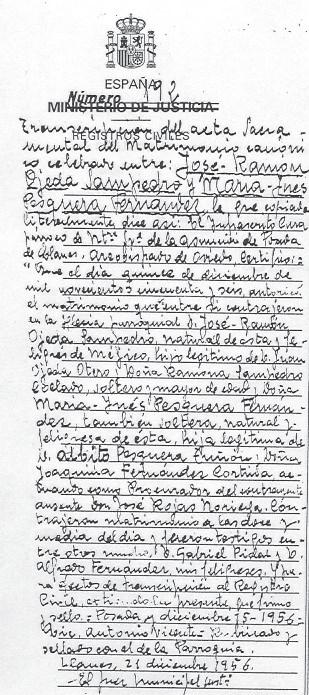 ESPAÑA
Número 192
MINISTERIO DE JUSTICIA
REGISTROS CIVILES
Transcripcion del acta Sacra-
mental del Matrimonio canoni
co celebrado entre: José-Ramon
Ojeda Sampedro y Maria-Ines
Pesquera Fernandez la que copiada
literalmente dice asi: El Cura
parroco de Ntª Srª de la asuncion de Posada
de Llanes, Arzobispado de Oviedo, Certifico:
"Que el dia quince de diciembre de
mil novecientos cincuenta y seis, autoricé
el matrimonio que entre si contrajeron
en la Iglesia parroquial D. José-Ramón
Ojeda Sampedro, natural de esta y fe-
ligres de Mexico, hijo legitimo de D. Juan
Ojeda Otero y Doña Ramona Sampedro
soltero y mayor de edad y Doña
Maria-Inés Pesquera Fernan-
dez, tambien soltera, natural y
feligresa de esta, hija legitima de
D. Pesquera y Doña
Joaquina Fernandez Cortina ac-
tuando como Procurador del contrayente
ausente Don José Rojas Noriega. Con-
trajeron matrimonio a las doce y
media del dia y fueron testigos en-
tre otros muchos, D. Gabriel Pidal y D.
Alfredo Fernandez, mis feligreses. Y pa-
ra efectos de transcripción al Registro
Civil, el presente, que firmo
y sello. Posada y diciembre 15-1956-
Antonio - Rubricado y
sellado con el de la Parroquia.
Llanes, 21 diciembre 1956.
- El juez municipal